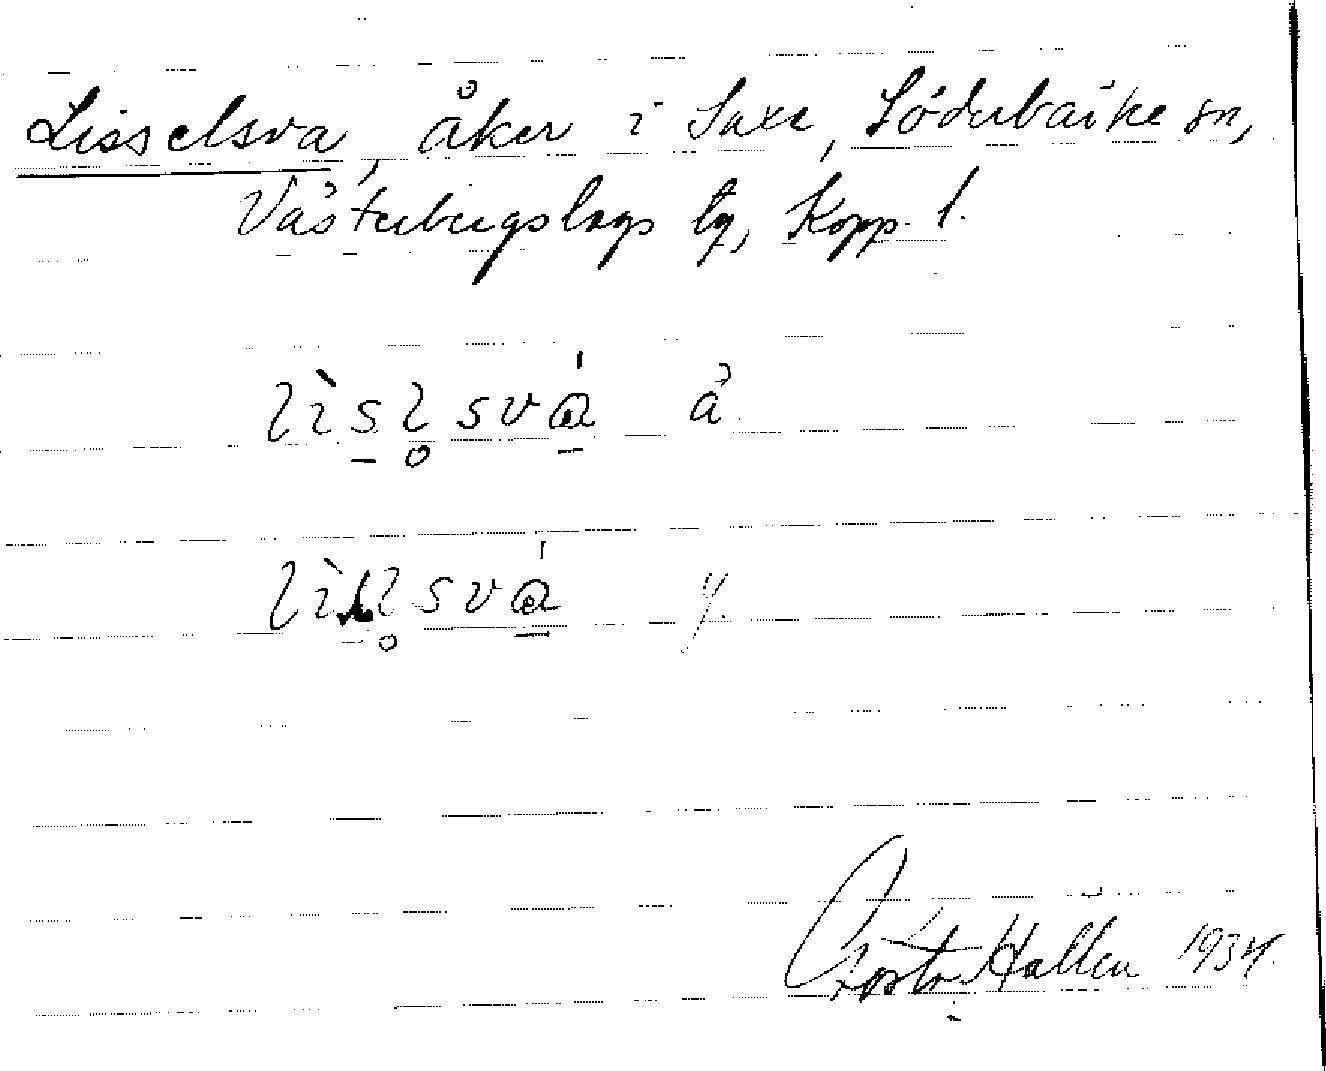 Lisselsva, åker i Saxe, Söderbärke sn,
Västerbergslags tg, Kopp. l.
lìsl̥svá å
lìsl̥svá y.
Hallén 1934.